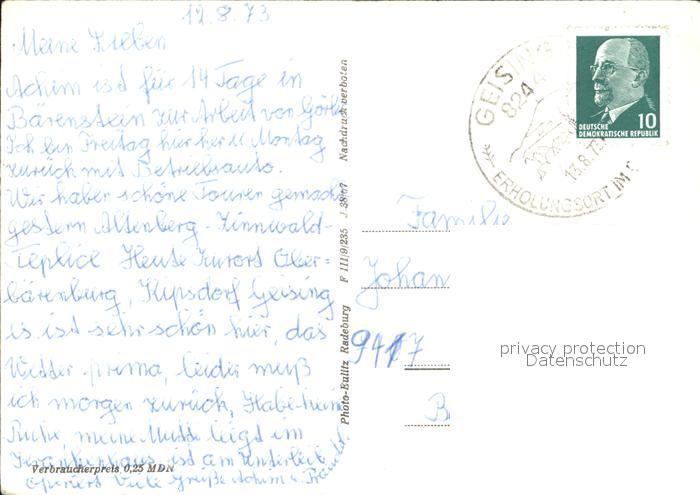 12.8.73
Meine Lieben
Achim ist für 14 Tage in
Bärenstein zur Arbeit von Görlitz
Ich bin Freitag hierher u. Montag
zurück mit Betriebsauto.
Wir haben schöne Touren gemacht
gestern Altenberg - Zinnwald -
Teplice Heute Kurort Ober=
bärenburg, Kipsdorf Geising
es ist sehr schön hier, das
Wetter prima, leider muß
ich morgen zurück, Habe keine
Ruhe, meine Mutti liegt im
Krankenhaus ist am Unterleib
operiert Viele Grüße Achim u.
Verbraucherpreis 0,25 MDN
Photo-Eulitz Radeburg F 111/9/235 J 38/67 Nachdruck verboten
GEISING
8244
13.8.73
ERHOLUNGSORT IM
10
DEUTSCHE
DEMOKRATISCHE REPUBLIK
Familie
Johan
9417
B
privacy protection
Datenschutz